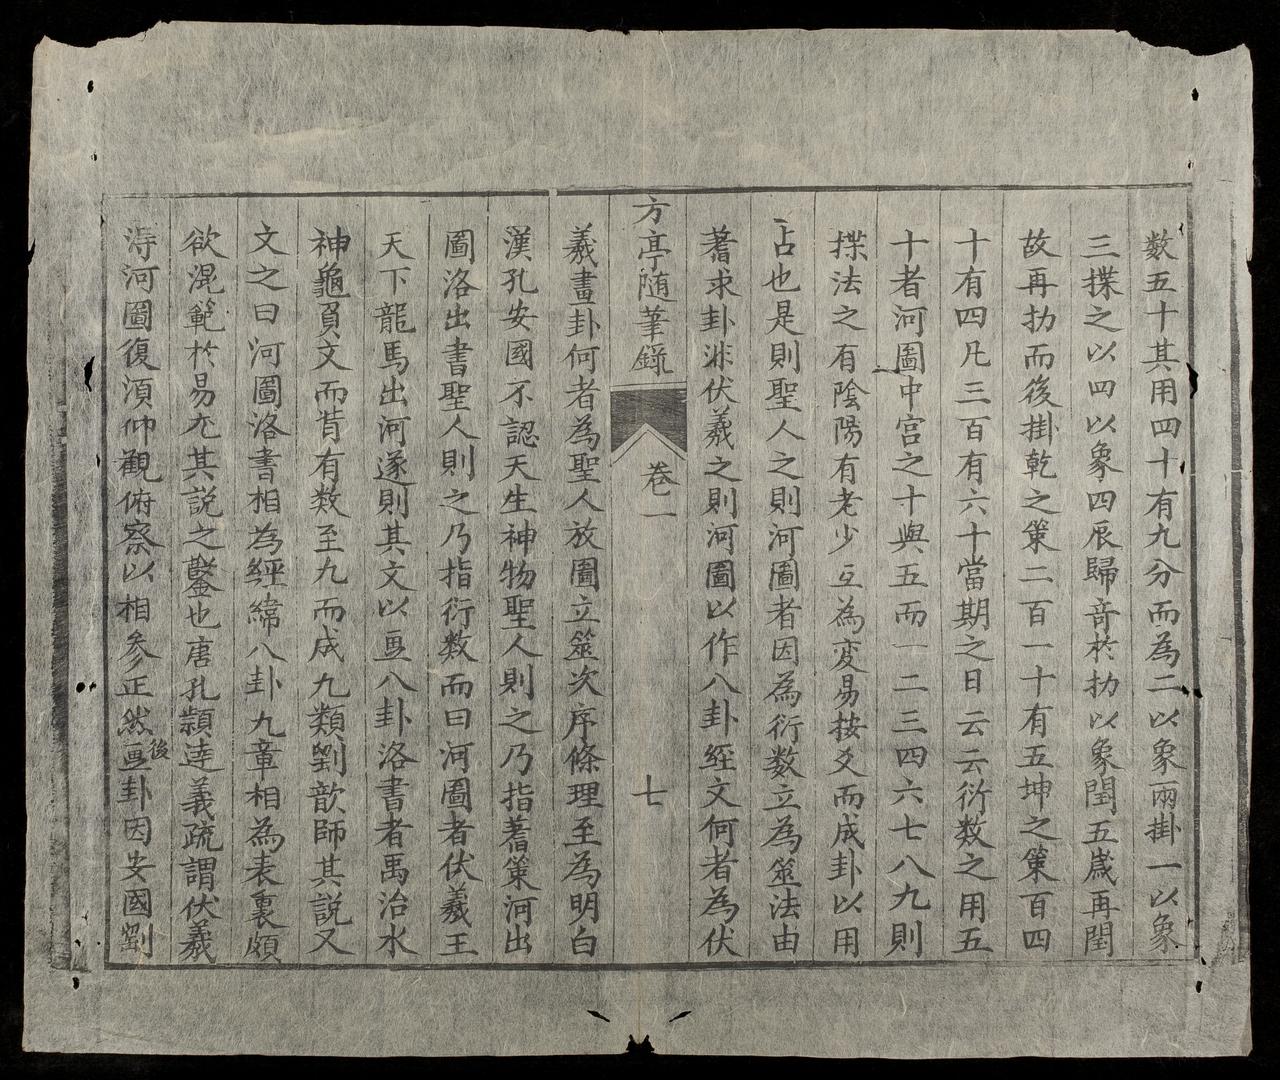 数五十其用四十有九分而為二以象兩掛一以象
三揲之以四以象四辰歸竒於扐以象閏五歲再閏
故再扐而後掛乾之策二百一十有五坤之策百四
十有四凡三百有六十當期之日云云衍数之用五
十者河圖中宮之十與五而一二三四六七八九則
揲法之有陰陽有老少互為変易按爻而成卦以用
占也是則聖人之則河圖者因為衍数立為筮法由
蓍求卦非伏羲之則河圖以作八卦経文何者為伏
方亭随筆錄
卷一
七
羲畫卦何者為聖人放圖立筮次序條理至為明白
漢孔安國不認天生神物聖人則之乃指蓍策河出
圖洛出書聖人則之乃指衍数而曰河圖者伏羲王
天下龍馬出河遂則其文以画八卦洛書者禹治水
神龜負文而背有数至九而成九類劉歆師其說又
文之曰河圖洛書相為經緯八卦九章相為表裏頗
欲混範於易尤其説之鑿也唐孔頴逹義疏謂伏羲
淂河圖復湏仰觀俯察以相参正然後画卦因安國劉